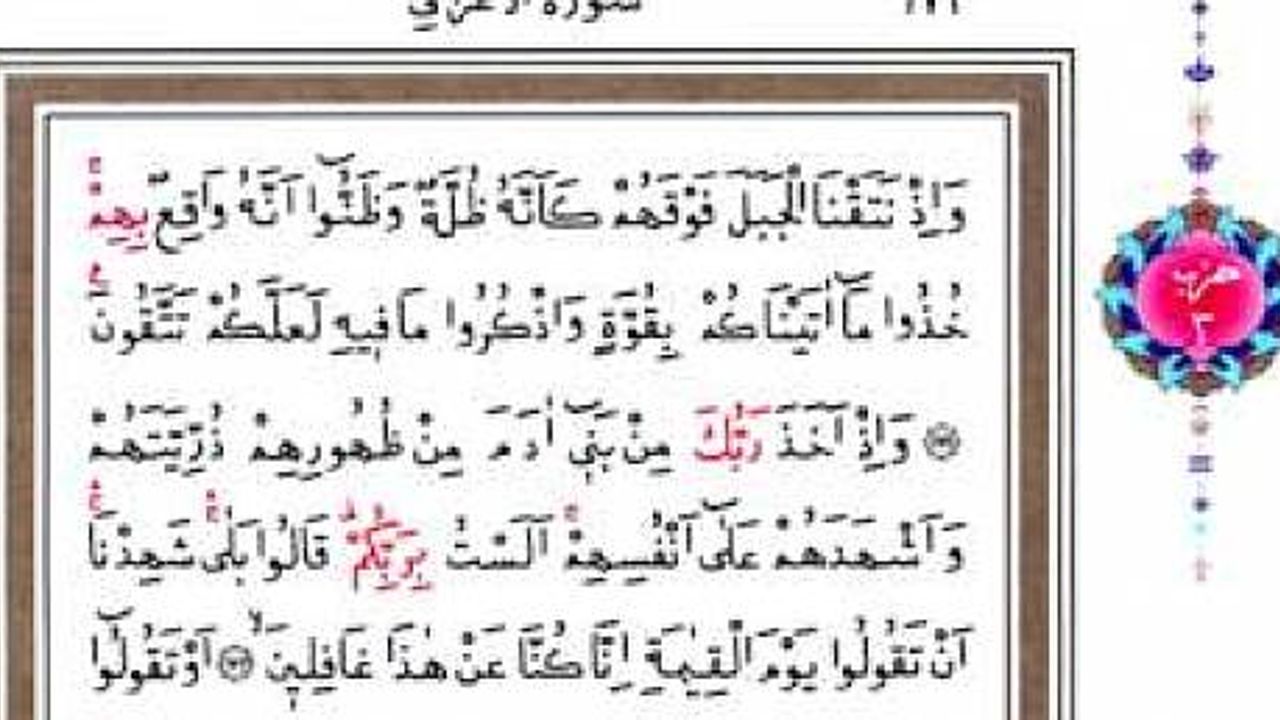 سورة الاعراف
١٧٢
وَاِذْ نَتَقْنَا الْجَبَلَ فَوْقَهُمْ كَاَنَّهُ ظُلَّةٌ وَظَنُّٓوا اَنَّهُ وَاقِعٌ بِهِمْۚ
خُذُوا مَٓا اٰتَيْنَاكُمْ بِقُوَّةٍ وَاذْكُرُوا مَا فٖيهِ لَعَلَّكُمْ تَتَّقُونَ۟
وَاِذْ اَخَذَ رَبُّكَ مِنْ بَنٖٓي اٰدَمَ مِنْ ظُهُورِهِمْ ذُرِّيَّتَهُمْ
وَاَشْهَدَهُمْ عَلٰٓى اَنْفُسِهِمْۚ اَلَسْتُ بِرَبِّكُمْۜ قَالُوا بَلٰىۚ شَهِدْنَاۚ
اَنْ تَقُولُوا يَوْمَ الْقِيٰمَةِ اِنَّا كُنَّا عَنْ هٰذَا غَافِلٖينَۙ اَوْ تَقُولُٓوا
حزب
٣